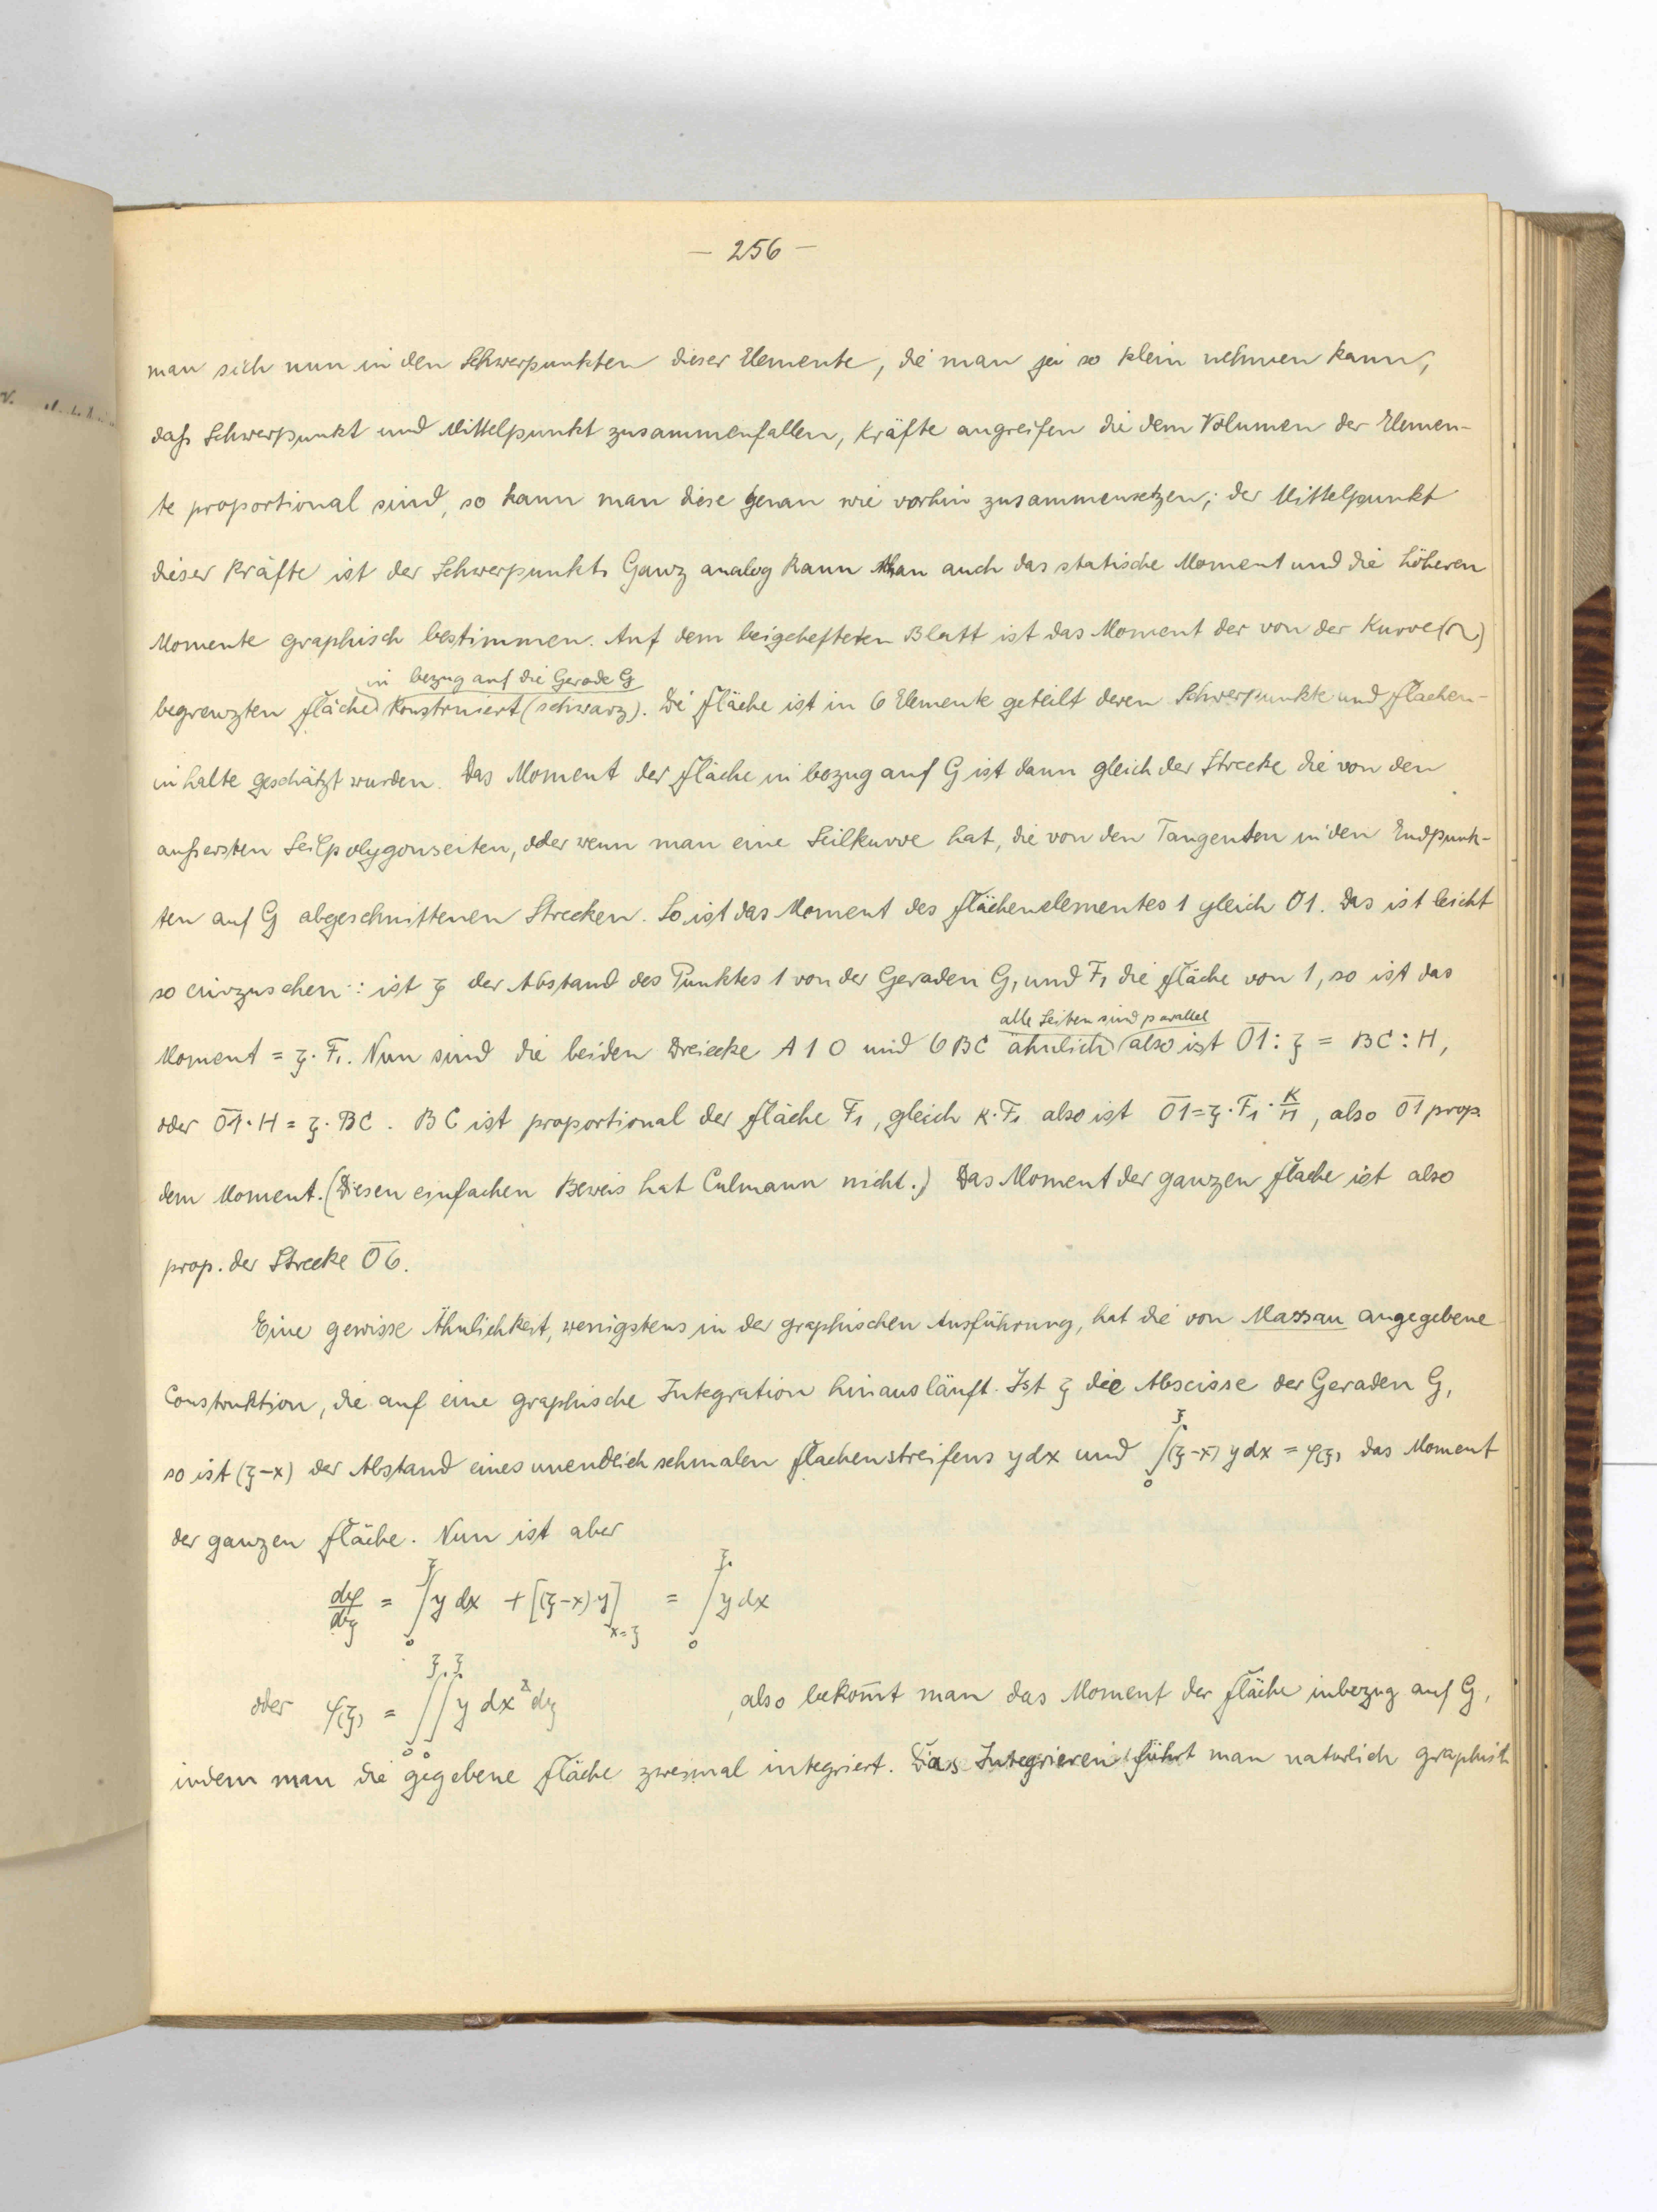 – 256 –
man sich nun in den Schwerpunkten dieser Elemente, die man ja so klein nehmen kann,
daß Schwerpunkt und Mittelpunkt zusammenfallen, Kräfte angreifen die dem Volumen der Elemen-
te proportional sind, so kann man diese genau wie vorhin zusammensetzen; der Mittelpunkt
dieser Kräfte ist der Schwerpunkt. Ganz analog kann man auch das statische Moment und die höheren
Momente graphisch bestimmen. Auf dem beigehefteten Blatt ist das Moment der von der Kurve (~)
in bezug auf die Gerade G
begrenzten Fläche konstruiert (schwarz). Die Fläche ist in 6 Elemente geteilt deren Schwerpunkte und Flächen-
inhalte geschätzt wurden. Das Moment der Fläche in bezug auf G ist dann gleich der Strecke die von den
äußersten Seilpolygonseiten, oder wenn man eine Seilkurve hat, die von den Tangenten in den Endpunk-
ten auf G abgeschnittenen Strecken. So ist das Moment des Flächenelementes 1 gleich 01. Das ist leicht
so einzusehen: ist ξ der Abstand des Punktes 1 von der Geraden G, und F₁ die Fläche von 1, so ist das
alle Seiten sind parallel
Moment = ξ · F₁. Nun sind die beiden Dreiecke A 1 0 und 6 BC ähnlich also ist 0̅1̅ : ξ = BC : H,
oder 0̅1̅ · H = ξ · BC. BC ist proportional der Fläche F₁, gleich K · F₁ also ist 0̅1̅ = ξ · F₁ · K/H, also 0̅1̅ prop.
dem Moment. (Diesen einfachen Beweis hat Culmann nicht.) Das Moment der ganzen Fläche ist also
prop. der Strecke 0̅6̅.
Eine gewisse Ähnlichkeit, wenigstens in der graphischen Ausführung, hat die von Massau angegebene
Construktion, die auf eine graphische Integration hinausläuft. Ist ξ die Abscisse der Geraden G,
so ist (ξ-x) der Abstand eines unendlich schmalen Flächenstreifens y dx und ∫₀^ξ (ξ-x) y dx = φ(ξ) das Moment
der ganzen Fläche. Nun ist aber
dφ/dξ = ∫₀^ξ y dx + [(ξ-x)·y]_{x=ξ} = ∫₀^ξ y dx
oder φ(ξ) = ∫₀^ξ ∫₀^ξ y dx² dξ , also bekom̅t man das Moment der Fläche inbezug auf G,
indem man die gegebene Fläche zweimal integriert. Das Integrieren führt man natürlich graphisch